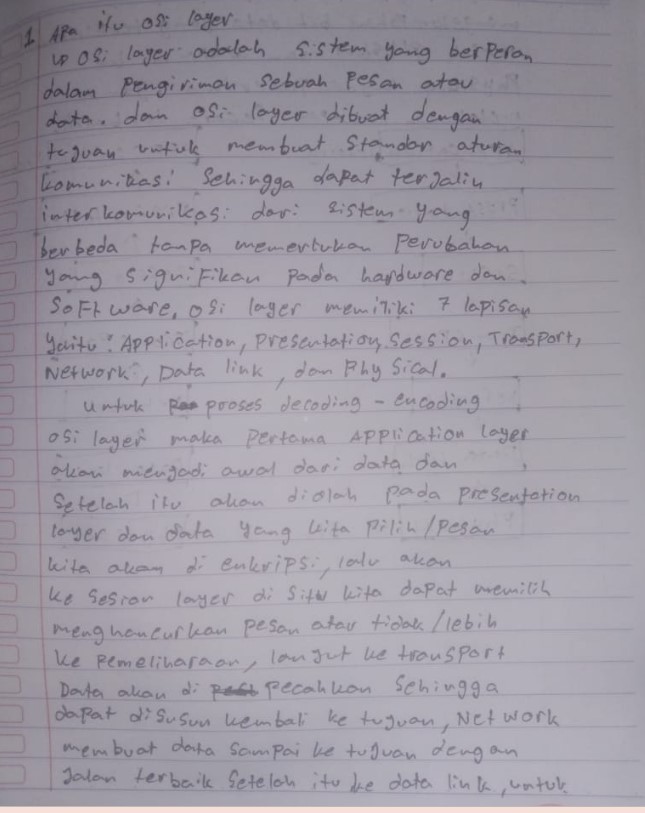 1. APa itu osi layer
↳ osi layer adalah sistem yang berperan
dalam pengiriman sebuah pesan atau
data. dan osi layer dibuat dengan
tujuan untuk membuat standar aturan
komunikasi sehingga dapat terjalin
interkomunikasi dari sistem yang
berbeda tanpa memerlukan perubahan
yang signifikan pada hardware dan
software, osi layer memiliki 7 lapisan
yaitu : Application, presentation, session, Transport,
Network, Data link, dan Physical.
untuk proses decoding - encoding
osi layer maka pertama Application layer
akan menjadi awal dari data dan
setelah itu akan diolah pada presentation
layer dan data yang kita pilih/pesan
kita akan di enkripsi, lalu akan
ke session layer di situ kita dapat memilih
menghancurkan pesan atau tidak/lebih
ke pemeliharaan, lanjut ke transport
Data akan di pecahkan sehingga
dapat disusun kembali ke tujuan, Network
membuat data sampai ke tujuan dengan
jalan terbaik setelah itu ke data link, untuk